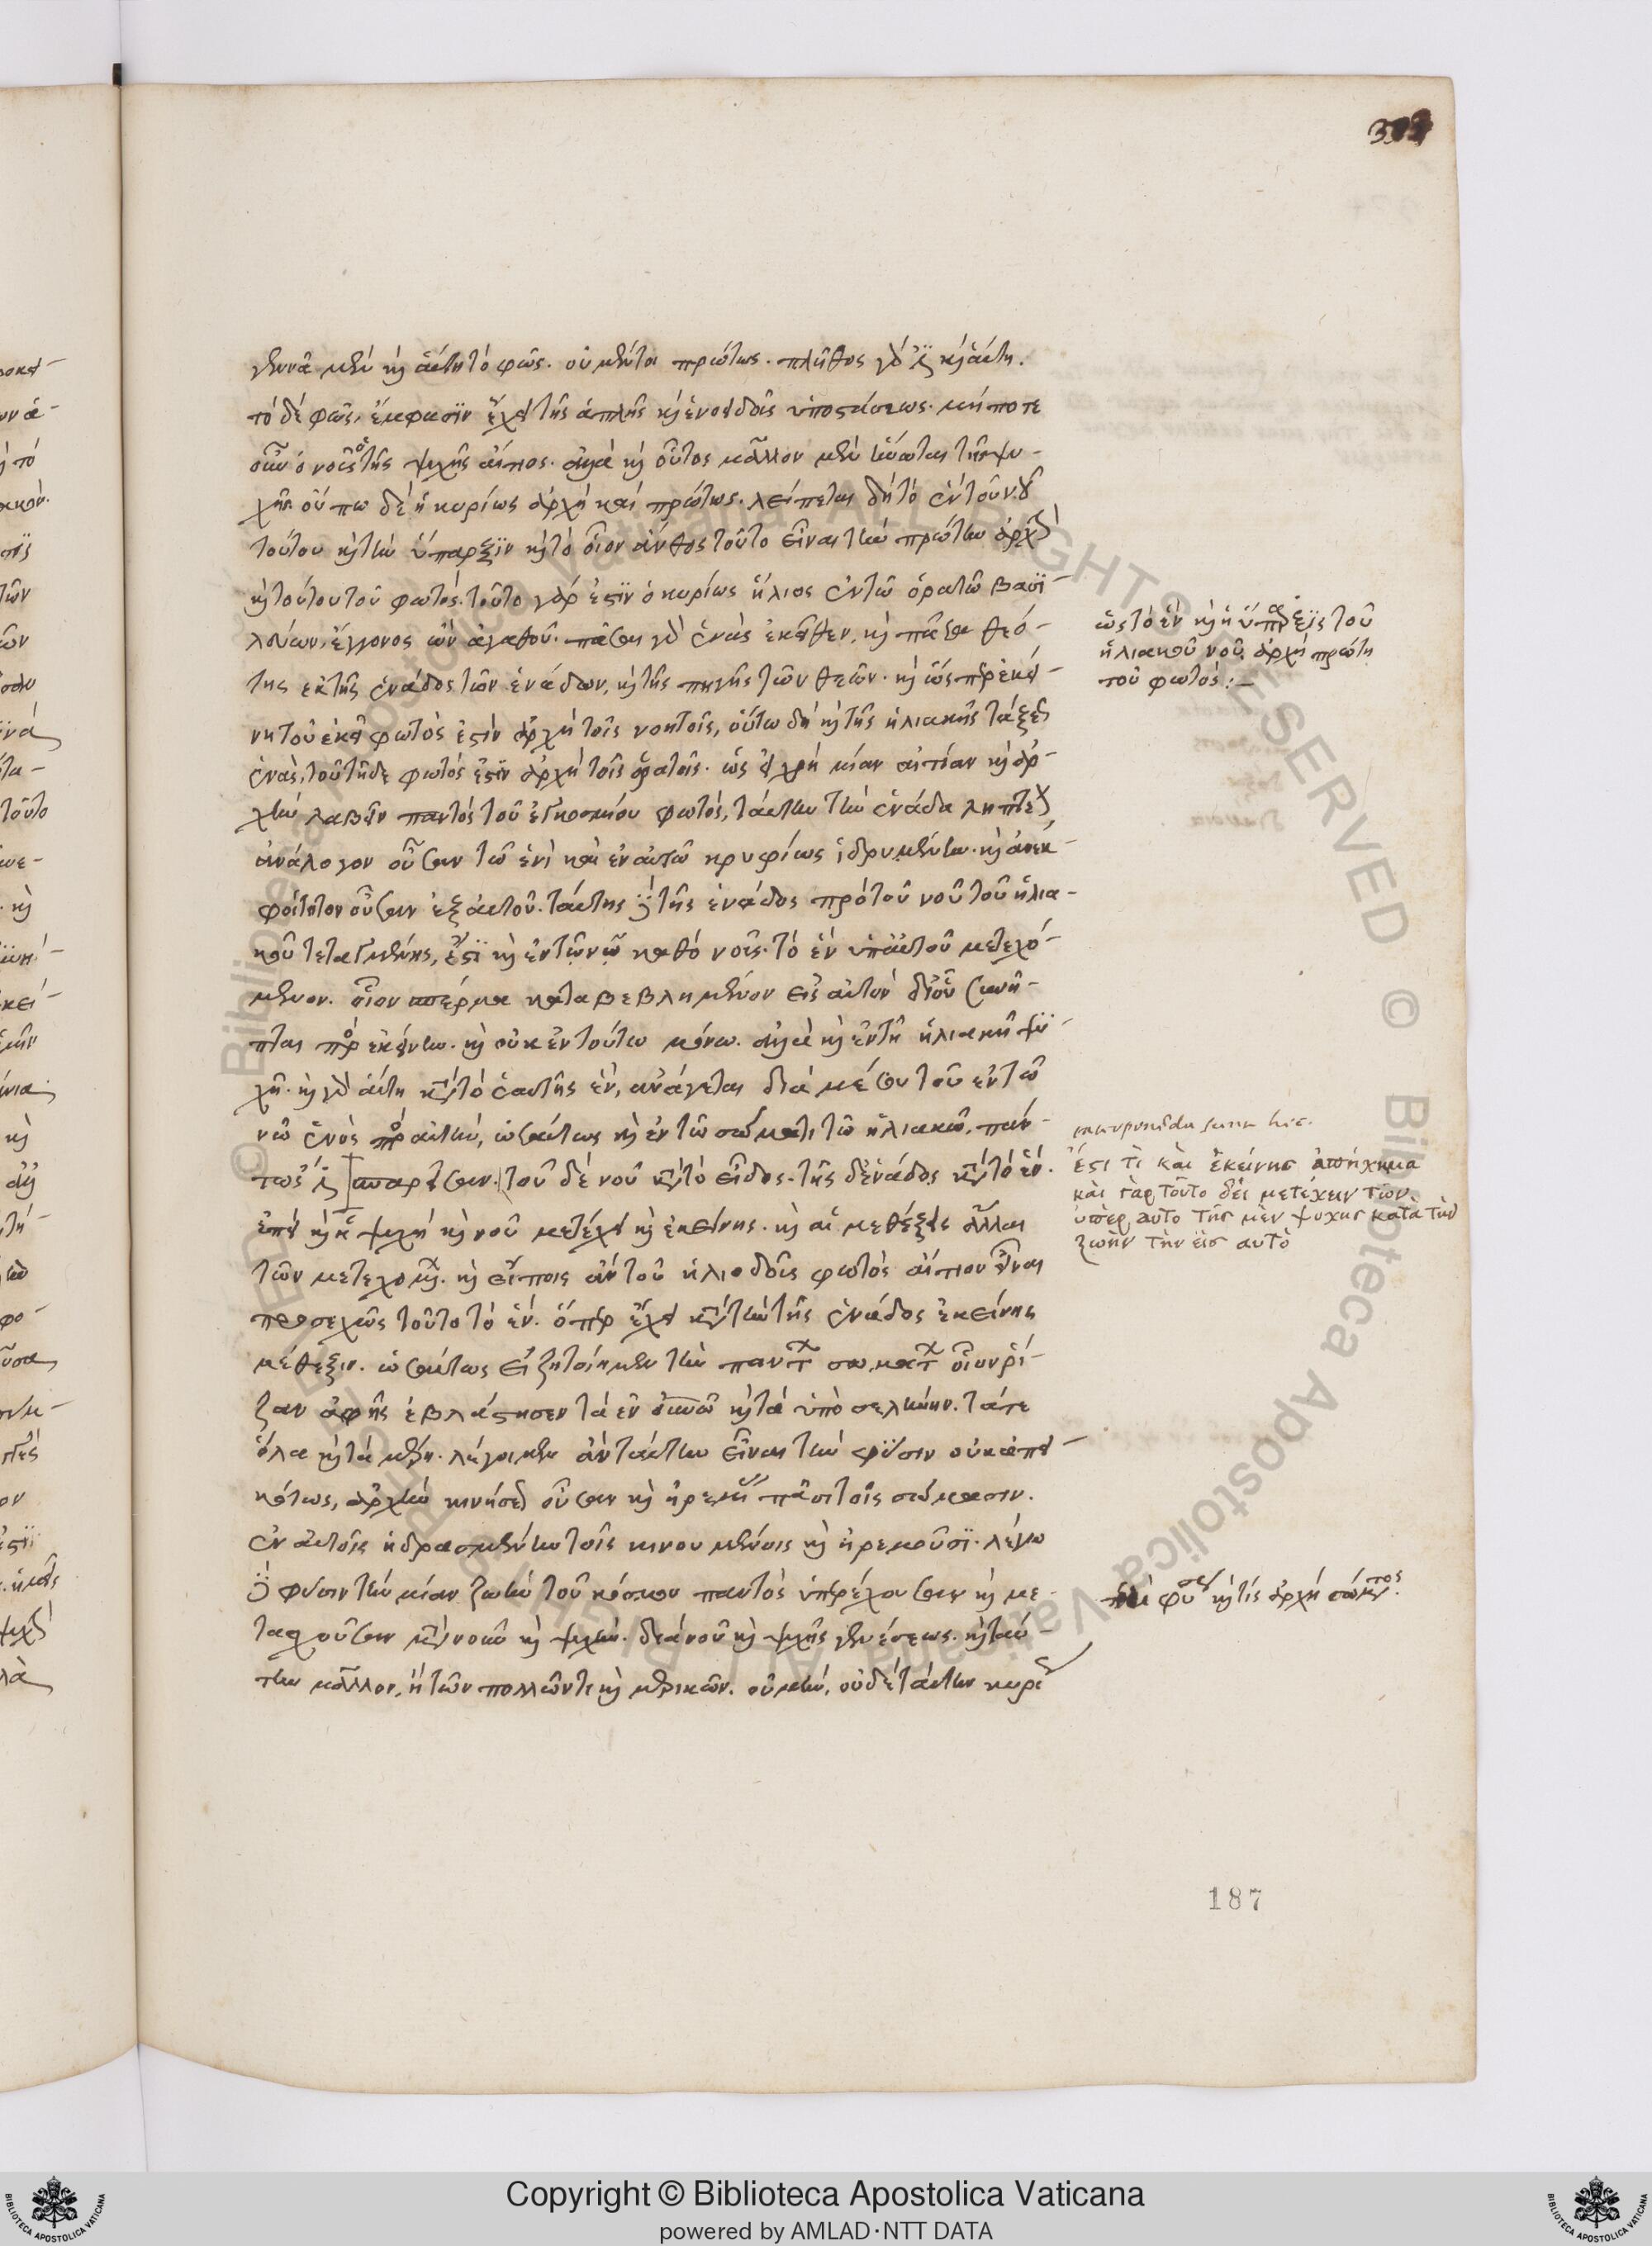 γεννᾷ μὲν καὶ αὕτη τὸ φῶς. οὐ μέντοι πρώτως. πλῆθος γάρ ἐστι καὶ αὕτη.
τὸ δὲ φῶς, ἔμφασιν ἔχει τῆς ἁπλῆς καὶ ἑνοειδοῦς ὑποστάσεως. μή ποτε
οὖν ὁ νοῦς ὁ τῆς ψυχῆς αἴτιος. ἀλλὰ καὶ οὗτος μᾶλλον μὲν ἥνωται τῆς ψυ-
χῆς οὔπω δὲ ἡ κυρίως ἀρχή καί πρώτως. λείπεται δὴ τὸ ἓν τοῦ νοῦ
τούτου καὶ τὴν ὕπαρξιν καὶ τὸ οἷον ἄνθος τοῦτο εἶναι τὴν πρώτην ἀρχὴν
καὶ τούτου τοῦ φωτός. τοῦτο γάρ ἐστιν ὁ κυρίως ἥλιος ἐν τῶ ὁρατῶ βασι-
λεύων, ἔγγονος ὢν ἀγαθοῦ. πᾶσα γὰρ ἑνὰς ἐκεῖθεν, καὶ πᾶσα θεό-
της ἐκ τῆς ἑνάδος τῶν ἑνάδων, καὶ τῆς πηγῆς τῶν θεῶν. καὶ ὥσπερ ἐκεί-
νη τοῦ ἐκεῖ φωτὸς ἐστὶν ἀρχὴ τοῖς νοητοῖς, οὕτω δὴ καὶ τῆς ἡλιακῆς τάξεως
ἑνὰς, τοῦ τῇδε φωτός ἐστιν ἀρχὴ τοῖς ὁρατοῖς. ὡς εἰ χρὴ μίαν αἰτίαν καὶ ἀρ-
χὴν λαβεῖν παντὸς τοῦ ἐγκοσμίου φωτός, ταύτην τὴν ἑνάδα ληπτέον
ἀνάλογον οὖσαν τῶ ἑνὶ καὶ ἐν αὐτῶ κρυφίως ἱδρυμένην. καὶ ἀνεκ-
φοίτητον οὖσαν ἐξ αὐτοῦ. ταύτης δὲ τῆς ἑνάδος πρὸ τοῦ νοῦ τοῦ ἡλια-
κοῦ τεταγμένης, ἔστι καὶ ἐν τῶ νῶ καθὸ νοῦς. τὸ ἓν ὑπ' αὐτοῦ μετεχό-
μενον. οἷον σπέρμα καταβεβλημένον εἰς αὐτὸν δι' οὗ συνῆ-
πται πρὸς ἐκείνην. καὶ οὐκ ἐν τούτω μόνω. ἀλλὰ καὶ ἐν τῆ ἡλιακῆ ψυ-
χῆ. καὶ γὰρ αὕτη κατὰ τὸ ἑαυτῆς ἓν, ἀνάγεται διὰ μέσου τοῦ ἐν τῶ
νῶ ἑνὸς πρὸς αὐτὴν, ὡσαύτως καὶ ἐν τῶ σώματι τῶ ἡλιακῶ, πάν-
τως ἐστὶ [υπαρξωσαν.] τοῦ δὲ νοῦ κατὰ τὸ εἶδος. τῆς δ' ἑνάδος κατὰ τὸ ἓν.
ἐπεὶ καὶ ἡ ψυχὴ καὶ νοῦ μετέχει καὶ ἐκείνης. καὶ αἱ μεθέξεις ἄλλαι
τῶν μετεχομένων. καὶ εἴποις ἂν τοῦ ἡλιοειδοῦς φωτὸς αἴτιον εἶναι
προσεχῶς τοῦτο τὸ ἓν. ὅπερ ἔχει κατὰ τὴν τῆς ἑνάδος ἐκείνης
μέθεξιν. ὡσαύτως εἰ ζητοίημεν τὴν πάντων σωμάτων οἷον ῥί-
ζαν ἀφ' ἧς ἐβλάστησεν τὰ ἐν οὐρανῶ καὶ τὰ ὑπὸ σελήνην. τά τε
ὅλα καὶ τὰ μέρη. λέγοιμεν ἂν ταύτην εἶναι τὴν φύσιν οὐκ ἀπει-
κότως, ἀρχὴν κινήσεως οὖσαν καὶ ἠρεμίας πᾶσι τοῖς σώμασιν.
ἐν αὐτοῖς ἡδρασμένην τοῖς κινουμένοις καὶ ἠρεμοῦσι. λέγω
δὲ φύσιν τὴν μίαν ζωὴν τοῦ κόσμου παντὸς ὑπερέχουσαν καὶ με-
τασχοῦσαν μετὰ νοῦν καὶ ψυχὴν. διὰ νοῦ καὶ ψυχῆς γενέσεως. καὶ ταύ-
την μᾶλλον, ἢ τῶν πολλῶν τι καὶ μερικῶν. οὐ μὴν, οὐδὲ ταύτην κυρίως
ὡς τὸ ἓν καὶ ἡ ὕπαρξις τοῦ
ἡλιακοῦ νοῦ ἀρχὴ πρώτη
τοῦ φωτός :—
hic.
ἔστι τι καὶ ἐκείνης ἀπήχημα
καὶ γὰρ τοῦτο δεῖ μετέχειν τῶν
ὑπὲρ αὐτο τῆς μὲν ψυχῆς κατὰ τὴν
ζωὴν τὴν εἰς αὐτὸ
περὶ φύσεως καὶ τίς ἀρχὴ σώματος.
187
Copyright © Biblioteca Apostolica Vaticana
powered by AMLAD·NTT DATA